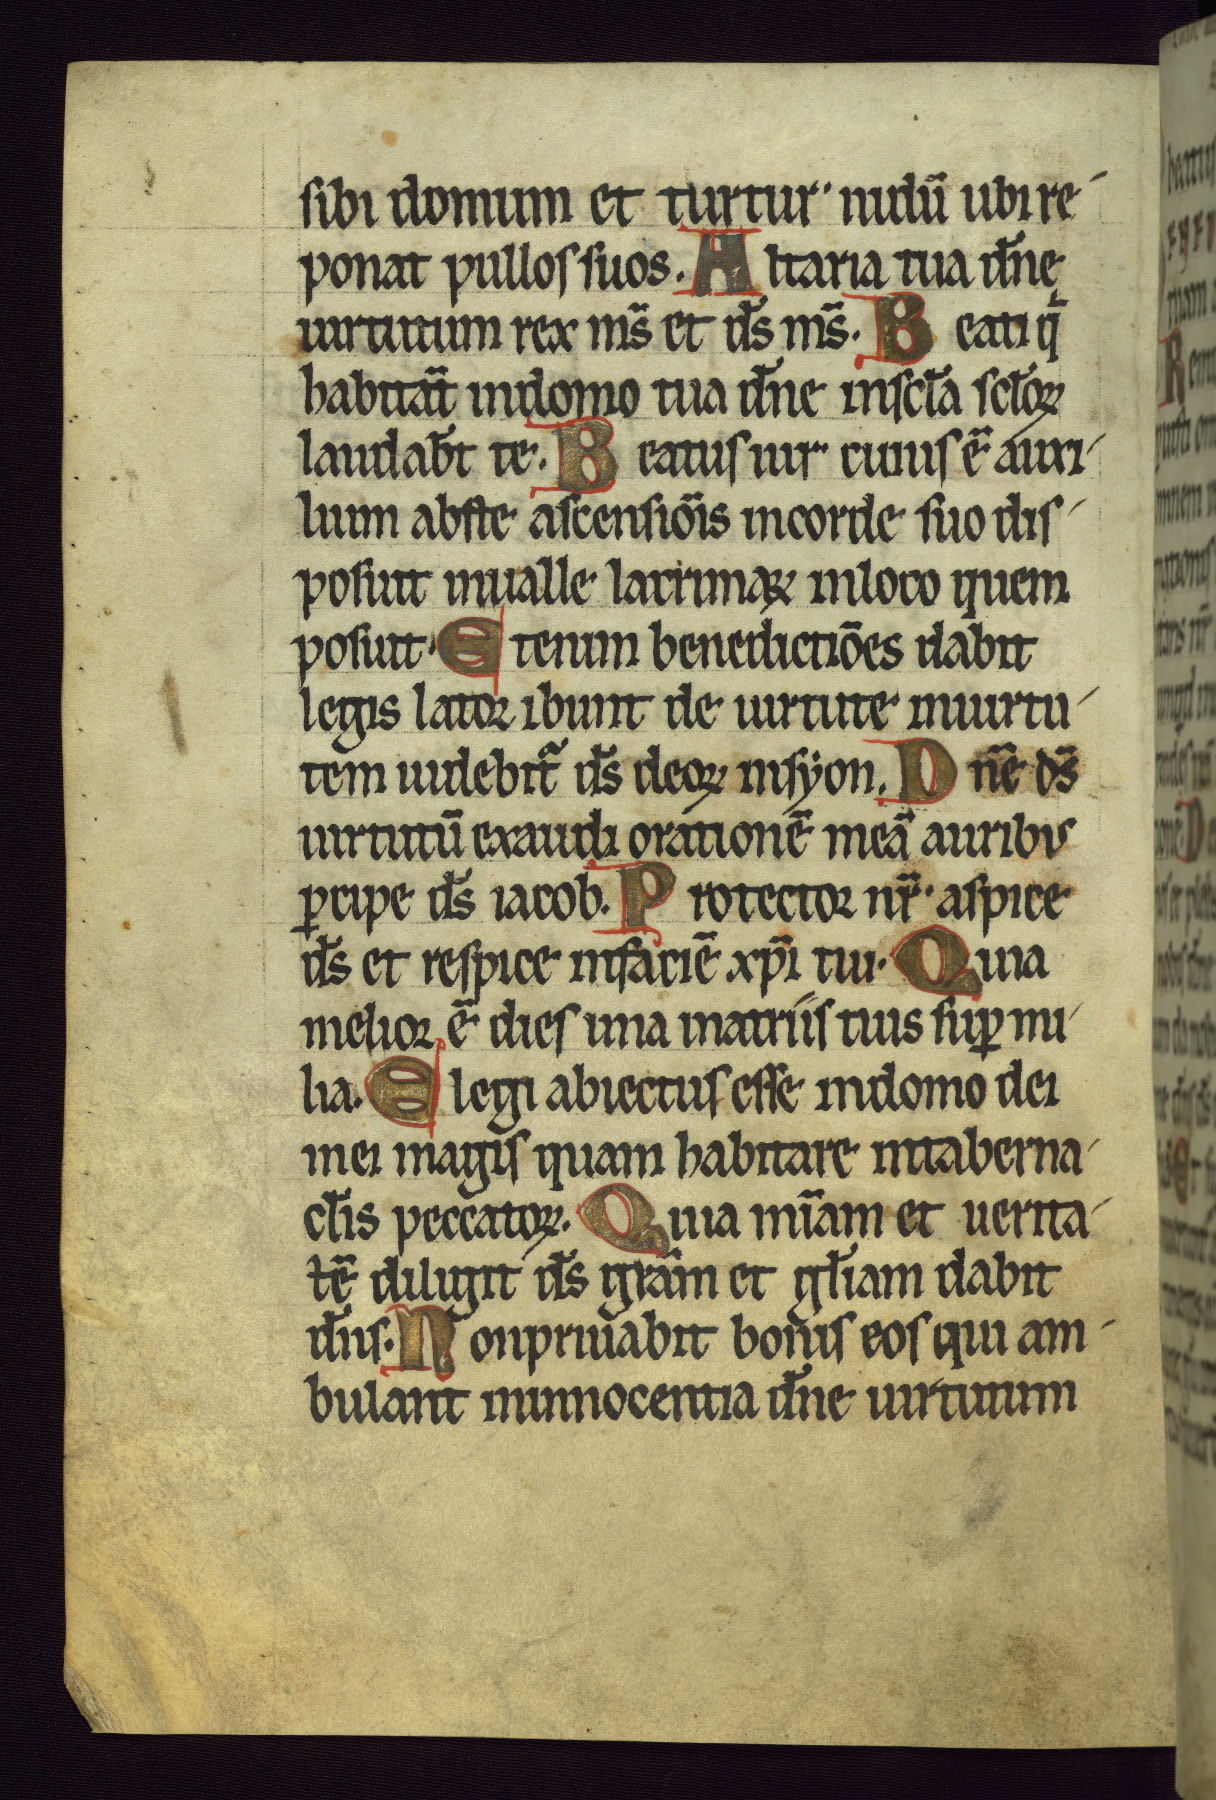 sibi domum et turtur nidū ubi re-
ponat pullos suos. Altaria tua dn̄e
uirtutum rex ms̄ et ds̄ ms̄. Beati q̄
habitāt in domo tua dn̄e in scl̄a sclōꝝ
laudab̄t te. Beatus uir cuius ē auxi-
lium abs te ascensiōis in corde suo dis-
posuit in ualle lacrimaꝝ in loco quem
posuit. Etenim benedictiōes dabit
legis lator ibunt de uirtute in uirtu-
tem uidebit᷑ ds̄ deoꝝ in syon. Dn̄e ds̄
uirtutū exaudi orationē meā auribus
ꝑcipe ds̄ iacob. Protector nr̄ aspice
ds̄ et respice in faciē xp̄i tui. Quia
melior ē dies una in atriis tuis suꝑ mi-
lia. Elegi abiectus esse in domo dei
mei magis quam habitare in taberna-
cl̄is peccatoꝝ. Quia mīam et uerita-
tē diligit ds̄ grām et gl̄iam dabit
dn̄s. Non priuabit bonis eos qui am-
bulant in innocentia dn̄e uirtutum